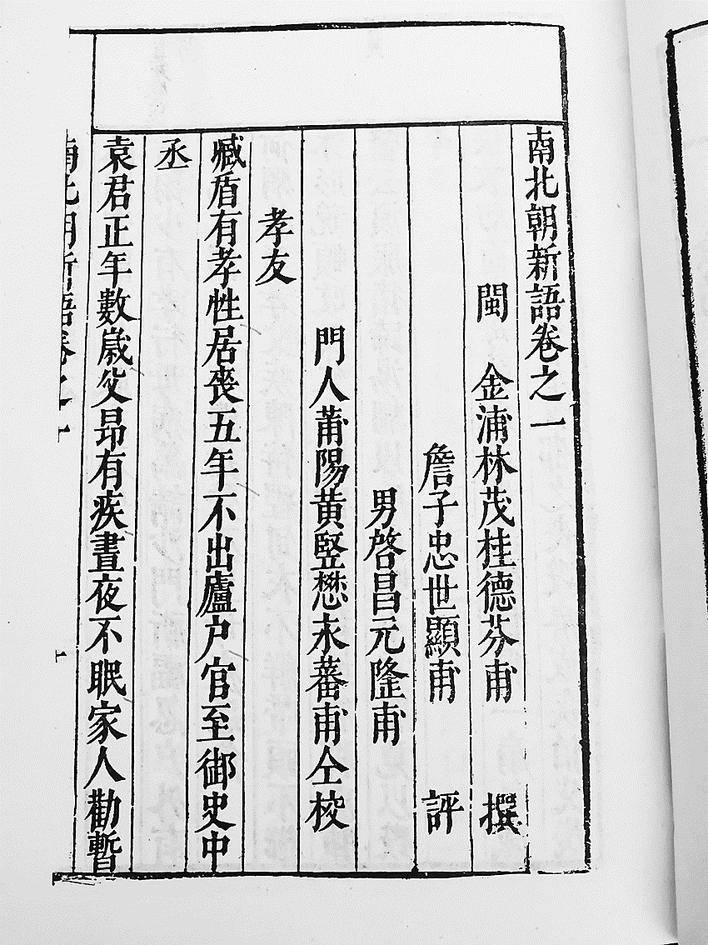 南北朝新語卷之一
閩　金浦林茂桂德芬甫　撰
詹子忠世顯甫　評
男啓昌元隆甫
門人莆陽黃竪懋永蕃甫仝校
孝友
臧盾有孝性居喪五年不出廬户官至御史中
丞
袁君正年數歲父昂有疾晝夜不眠家人勸暫
南北朝新語卷之一